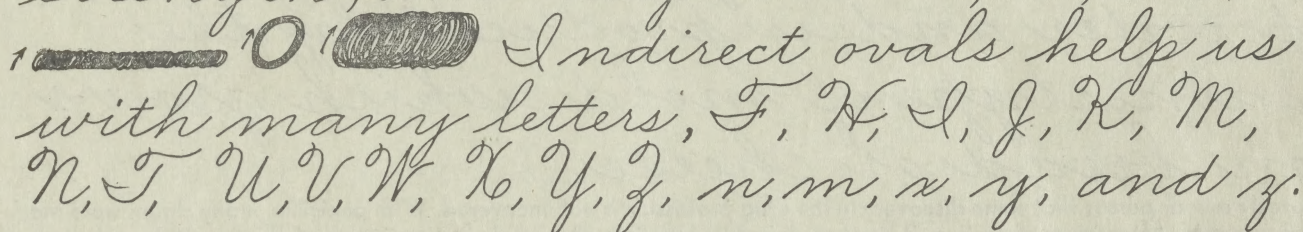 Indirect ovals help us
with many letters, F, H, I, J, K, M,
N, T, U, V, W, X, Y, Z, n, m, x, y, and z.